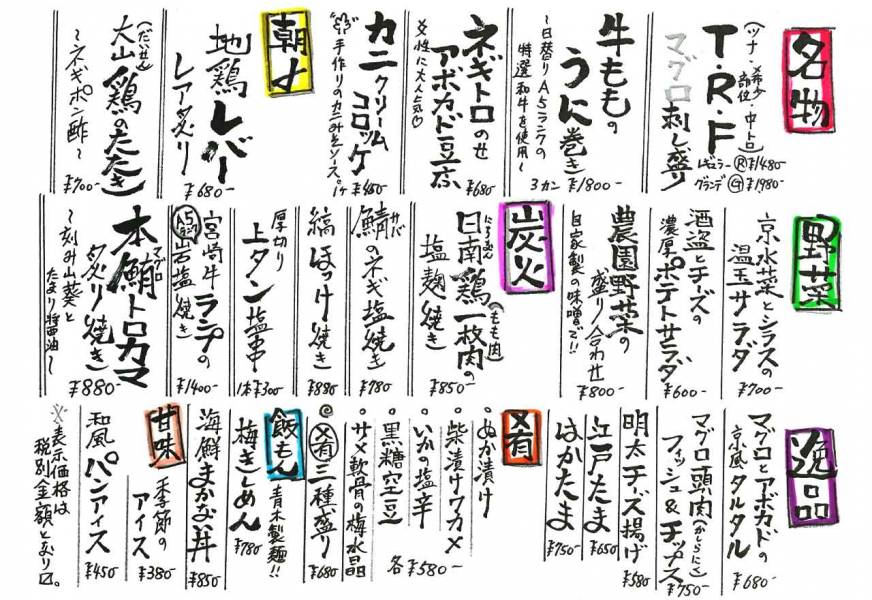 名物
(ツナ・希少部位・中トロ)
T・R・F
マグロ刺し盛り
レギュラー Ⓡ¥1480-
グランデ Ⓖ¥1980-
牛ももの
うに巻き
〜日替りA5ランクの
特選和牛を使用〜
3カン ¥1800-
ネギトロのせ
アボカド豆腐
女性に大人気♡
¥680-
カニクリームコロッケ
手作りのカニみそソース。
1ケ ¥450-
朝〆
地鶏レバー
レア炙り
¥680-
(だいせん)
大山鶏のたたき
〜ネギポン酢〜
¥700-
野菜
京水菜とシラスの
温玉サラダ
¥700-
酒盗とチーズの
濃厚ポテトサラダ
¥600-
農園野菜の
盛り合わせ
自家製の味噌で!!
¥800-
炭火
にちなん
日南鶏一枚肉の
(もも肉)
塩麹焼き
¥850-
サバ
鯖のネギ塩焼き
¥780-
縞ほっけ焼き
¥880-
厚切り
上タン塩串
1本¥300-
宮崎牛ランプの
A5 岩塩焼き
¥1400-
マグロ
本鮪トロカマ
炙り焼き
〜刻み山葵と
たまり醤油〜
¥880-
逸品
マグロとアボカドの
京風タルタル
¥680-
マグロ頭肉(かしらにく)
フィッシュ&チップス
¥750-
明太チーズ揚げ
¥580-
江戸たま
¥650
はかたま
¥750-
肴
・ぬか漬け
・柴漬けワカメ
・いかの塩辛
・黒糖空豆
・サメ軟骨の梅水晶
各¥580-
◎肴三種盛り
¥680-
飯もん
青木製麺!!
梅ぎしめん
¥780-
海鮮まかない丼
¥850-
甘味
季節の
アイス
¥380-
和風パンアイス
¥450-
※表示価格は
税別金額となります。